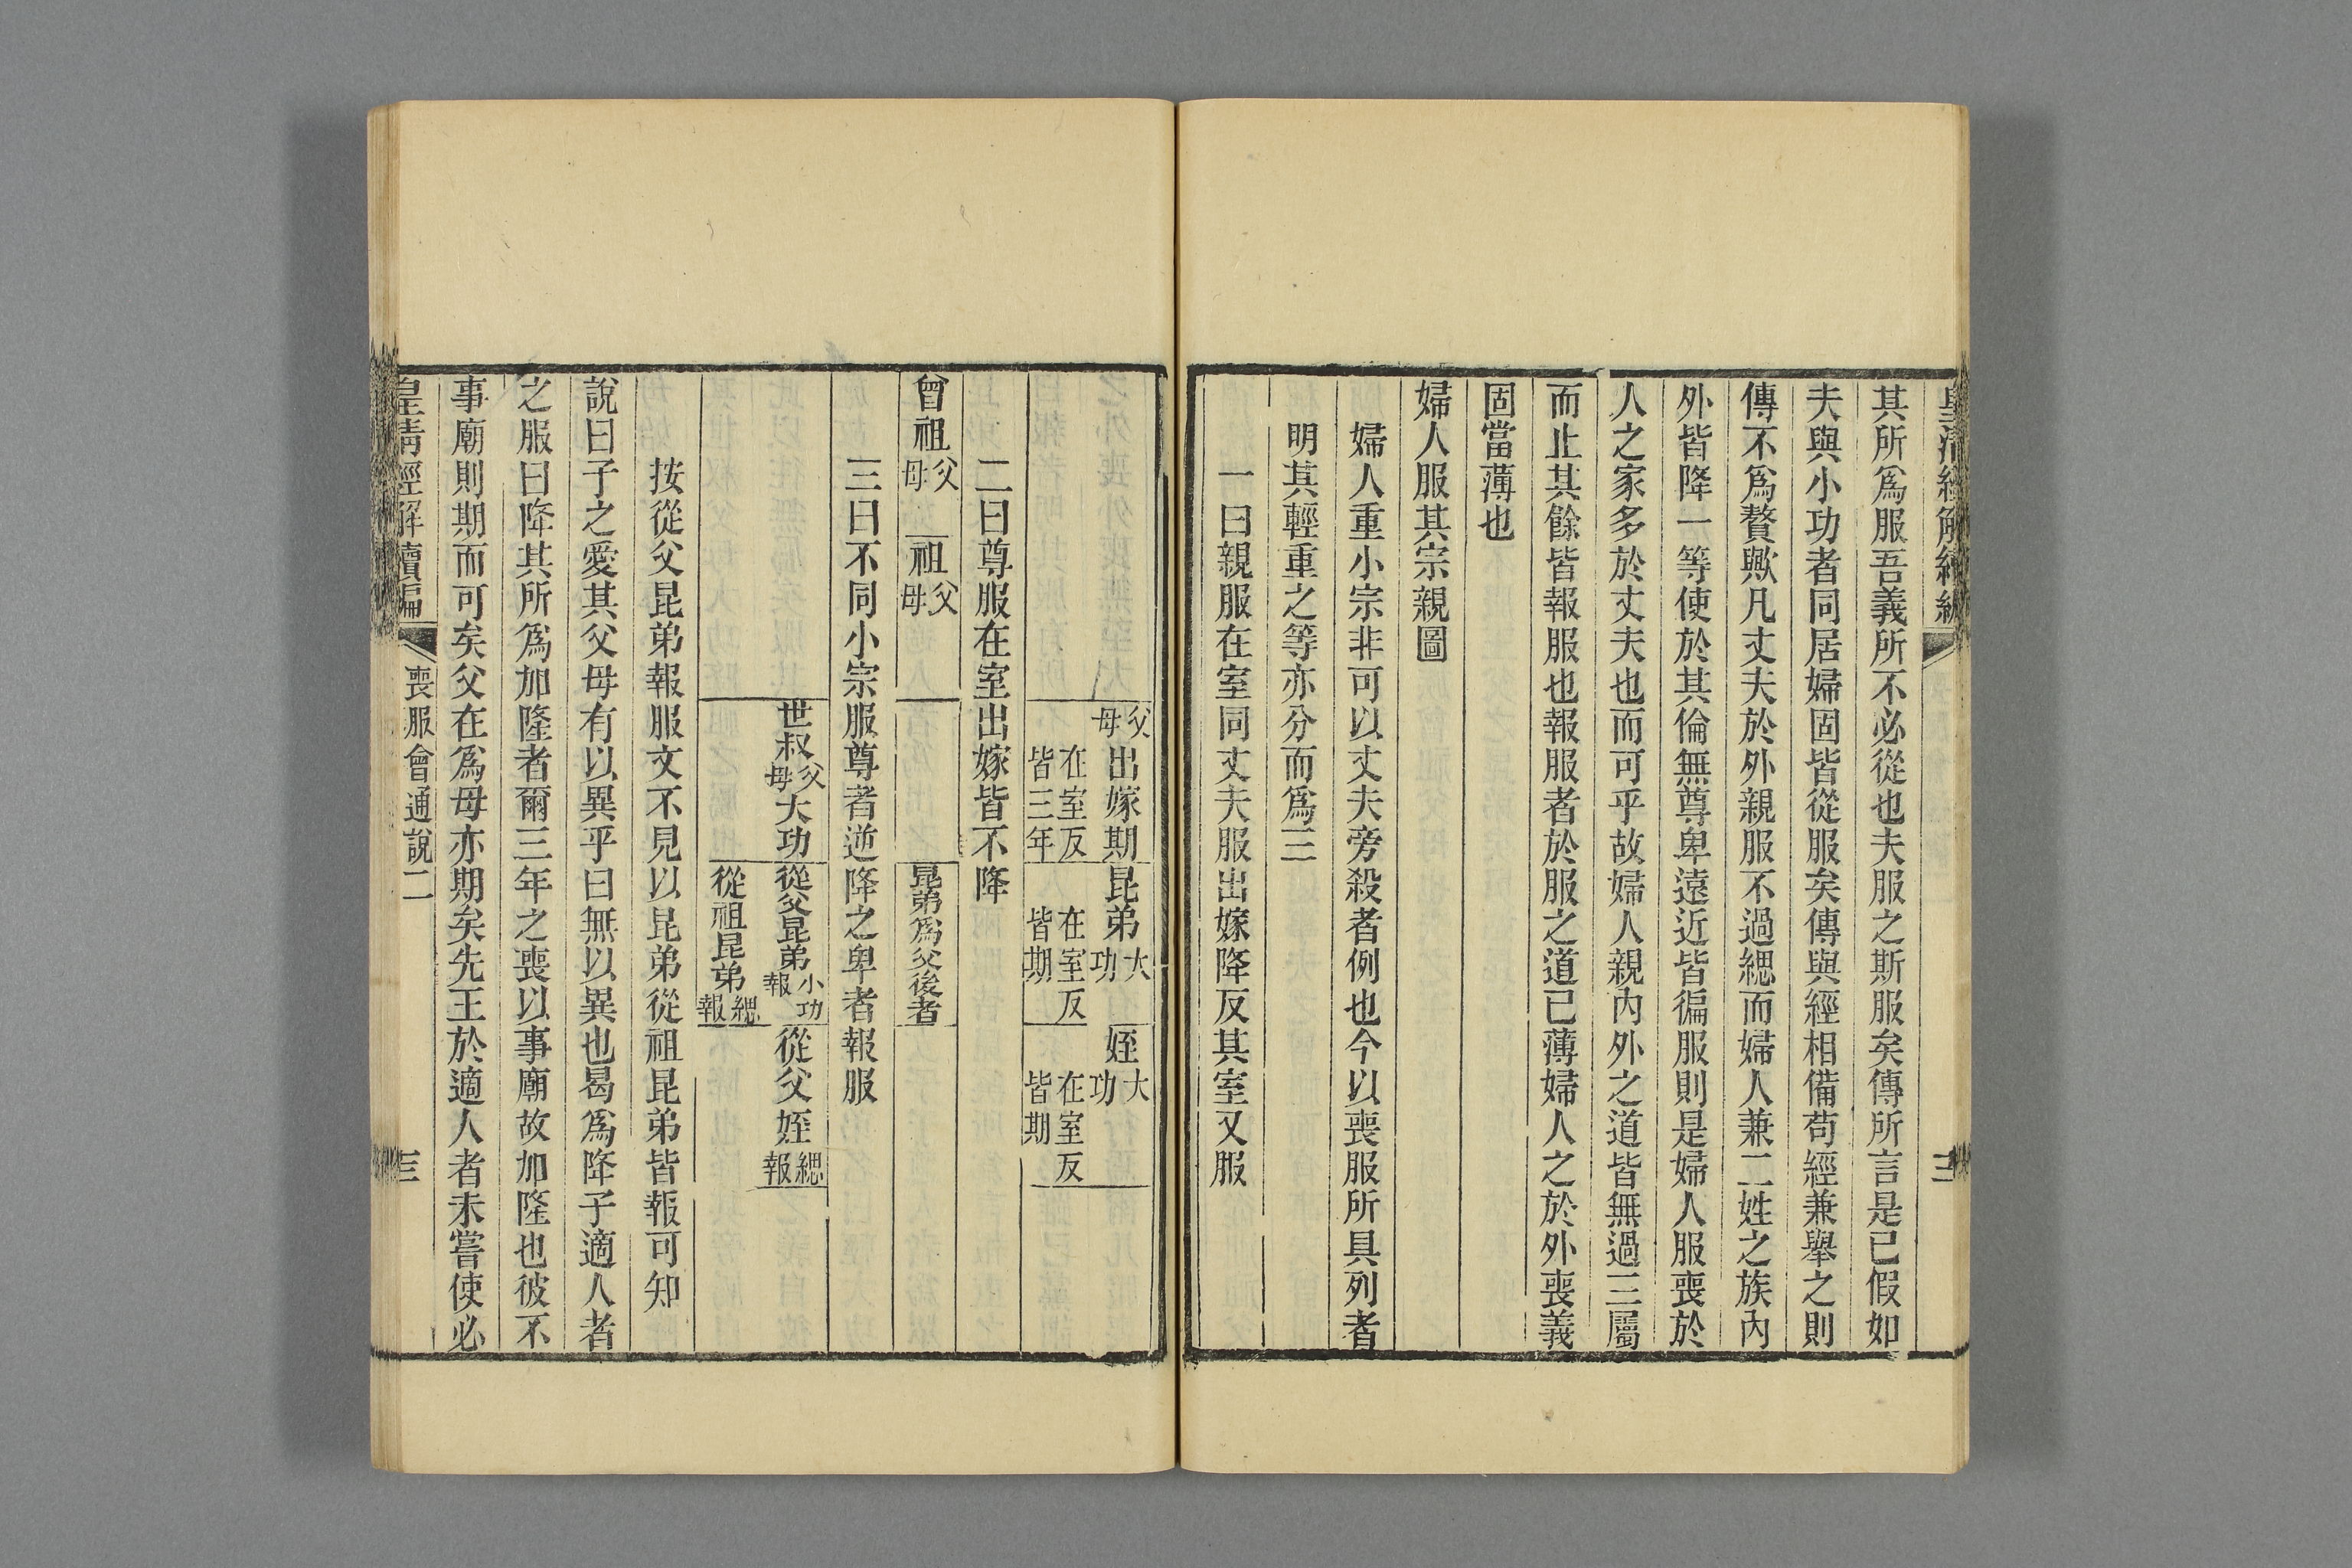 皇清經解續編
三
其所爲服吾義所不必從也夫服之斯服矣傳所言是已假如
夫與小功者同居婦固皆從服矣傳與經相備苟經兼舉之則
傳不爲贅歟凡丈夫於外親服不過緦而婦人兼二姓之族內
外皆降一等使於其倫無尊卑遠近皆徧服則是婦人服喪於
人之家多於丈夫也而可乎故婦人親內外之道皆無過三屬
而止其餘皆報服也報服者於服之道已薄婦人之於外喪義
固當薄也
婦人服其宗親圖
婦人重小宗非可以丈夫旁殺者例也今以喪服所具列者
明其輕重之等亦分而爲三
一曰親服在室同丈夫服出嫁降反其室又服
父母出嫁期在室反皆三年
昆弟大功在室反皆期
姪大功在室反皆期
二曰尊服在室出嫁皆不降
曾祖父母
祖父母
昆弟爲父後者
三曰不同小宗服尊者逆降之卑者報服
世叔父母大功
從父昆弟小功報
從父姪緦報
從祖昆弟緦報
按從父昆弟報服文不見以昆弟從祖昆弟皆報可知
說曰子之愛其父母有以異乎曰無以異也曷爲降子適人者
之服曰降其所爲加隆者爾三年之喪以事廟故加隆也彼不
事廟則期而可矣父在爲母亦期矣先王於適人者未嘗使必
皇清經解續編
喪服會通說二
三